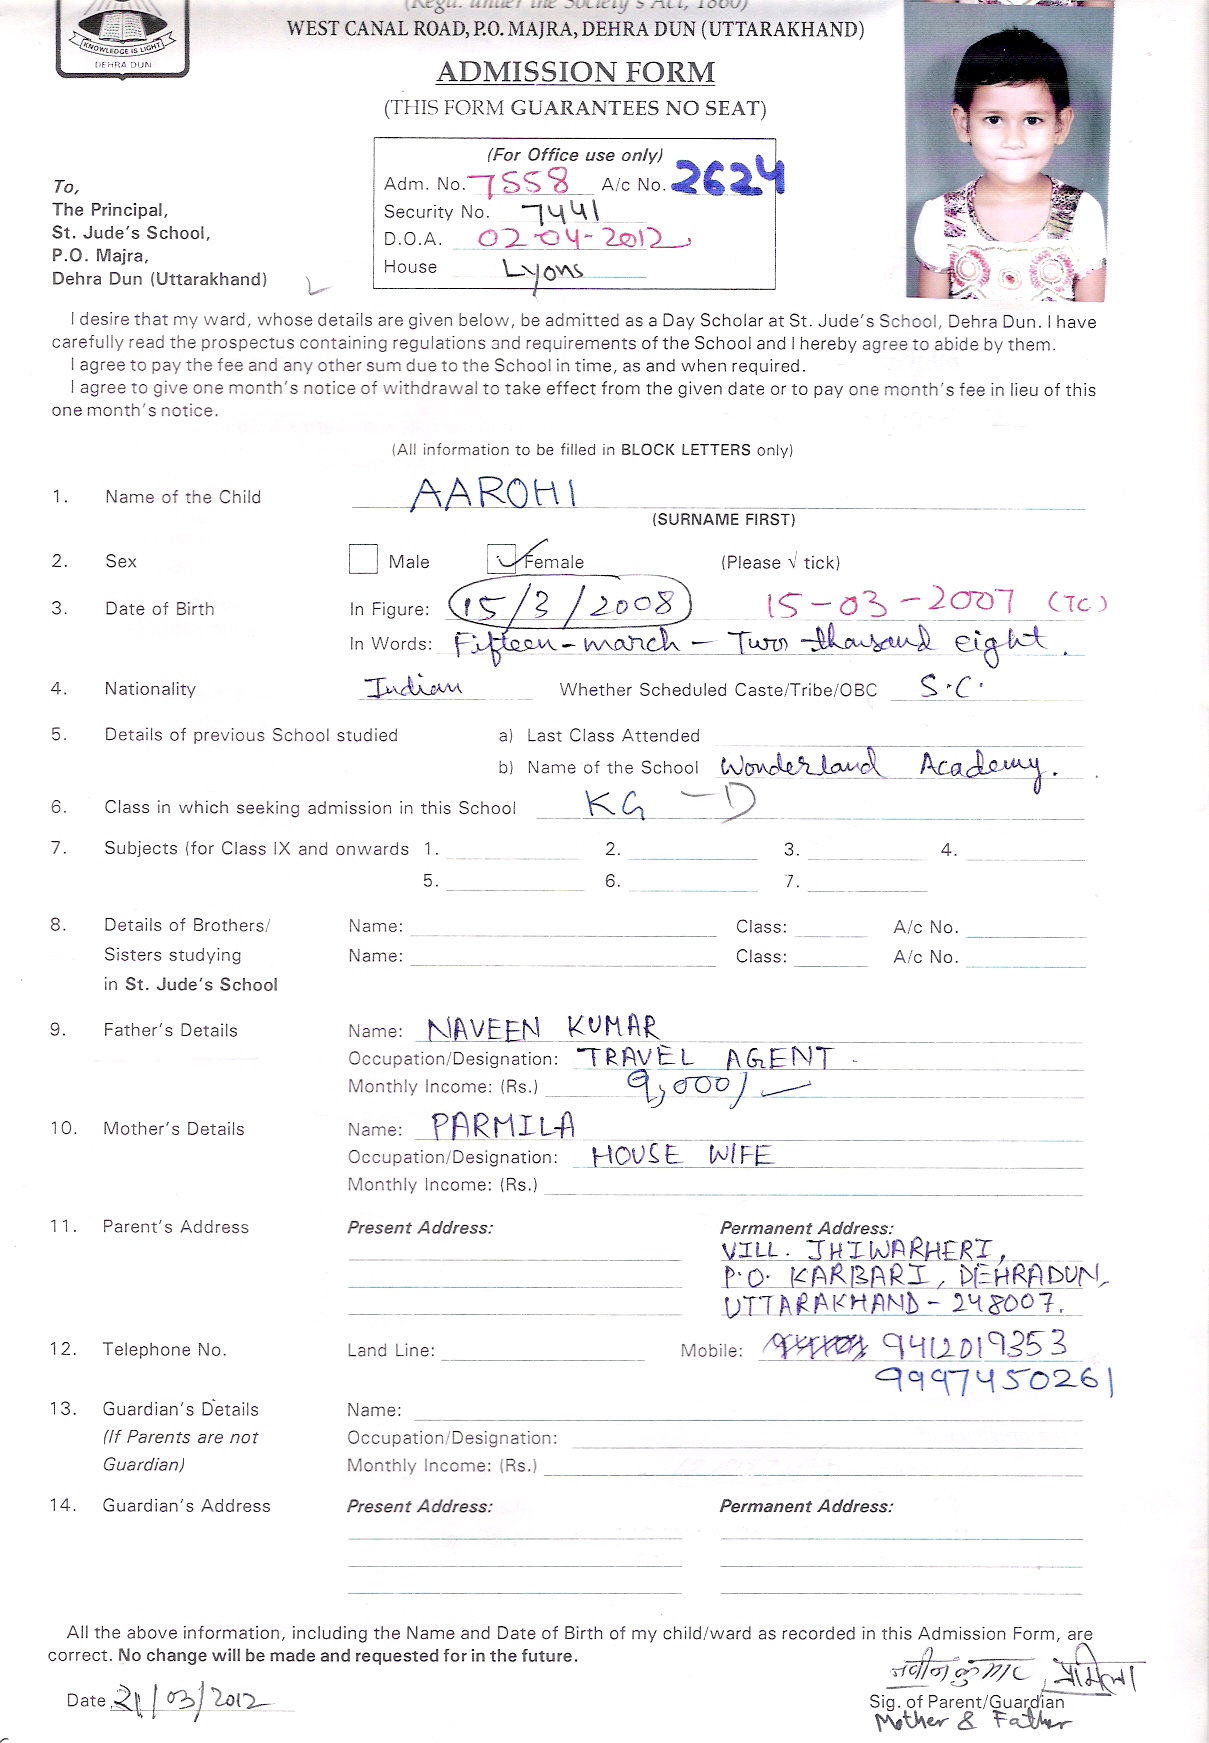 (Regd. under the Society's Act, 1860)
KNOWLEDGE IS LIGHT
DEHRA DUN
WEST CANAL ROAD, P.O. MAJRA, DEHRA DUN (UTTARAKHAND)
ADMISSION FORM
(THIS FORM GUARANTEES NO SEAT)
(For Office use only)
Adm. No. 7558 A/c No. 2624
Security No. 7441
D.O.A. 02-04-2012
House Lyons
To,
The Principal,
St. Jude's School,
P.O. Majra,
Dehra Dun (Uttarakhand)
I desire that my ward, whose details are given below, be admitted as a Day Scholar at St. Jude's School, Dehra Dun. I have
carefully read the prospectus containing regulations and requirements of the School and I hereby agree to abide by them.
I agree to pay the fee and any other sum due to the School in time, as and when required.
I agree to give one month's notice of withdrawal to take effect from the given date or to pay one month's fee in lieu of this
one month's notice.
(All information to be filled in BLOCK LETTERS only)
1. Name of the Child AAROHI
(SURNAME FIRST)
2. Sex Male Female (Please √ tick)
3. Date of Birth In Figure: 15/3/2008 15-03-2007 (TC)
In Words: Fifteen-march-Two thousand eight.
4. Nationality Indian Whether Scheduled Caste/Tribe/OBC S.C.
5. Details of previous School studied a) Last Class Attended
b) Name of the School Wonderland Academy.
6. Class in which seeking admission in this School KG - D
7. Subjects (for Class IX and onwards 1. 2. 3. 4.
5. 6. 7.
8. Details of Brothers/ Name: Class: A/c No.
Sisters studying Name: Class: A/c No.
in St. Jude's School
9. Father's Details Name: NAVEEN KUMAR
Occupation/Designation: TRAVEL AGENT
Monthly Income: (Rs.) 9,000/-
10. Mother's Details Name: PARMILA
Occupation/Designation: HOUSE WIFE
Monthly Income: (Rs.)
11. Parent's Address Present Address: Permanent Address:
VILL. JHIWARHERI,
P.O. KARBARI, DEHRADUN,
UTTARAKHAND-248007.
12. Telephone No. Land Line: Mobile: 9412019353
9997450261
13. Guardian's Details Name:
(If Parents are not Occupation/Designation:
Guardian) Monthly Income: (Rs.)
14. Guardian's Address Present Address: Permanent Address:
All the above information, including the Name and Date of Birth of my child/ward as recorded in this Admission Form, are
correct. No change will be made and requested for in the future.
नवीन कुमार, प्रमिला
Date 21/03/2012 Sig. of Parent/Guardian
Mother & Father